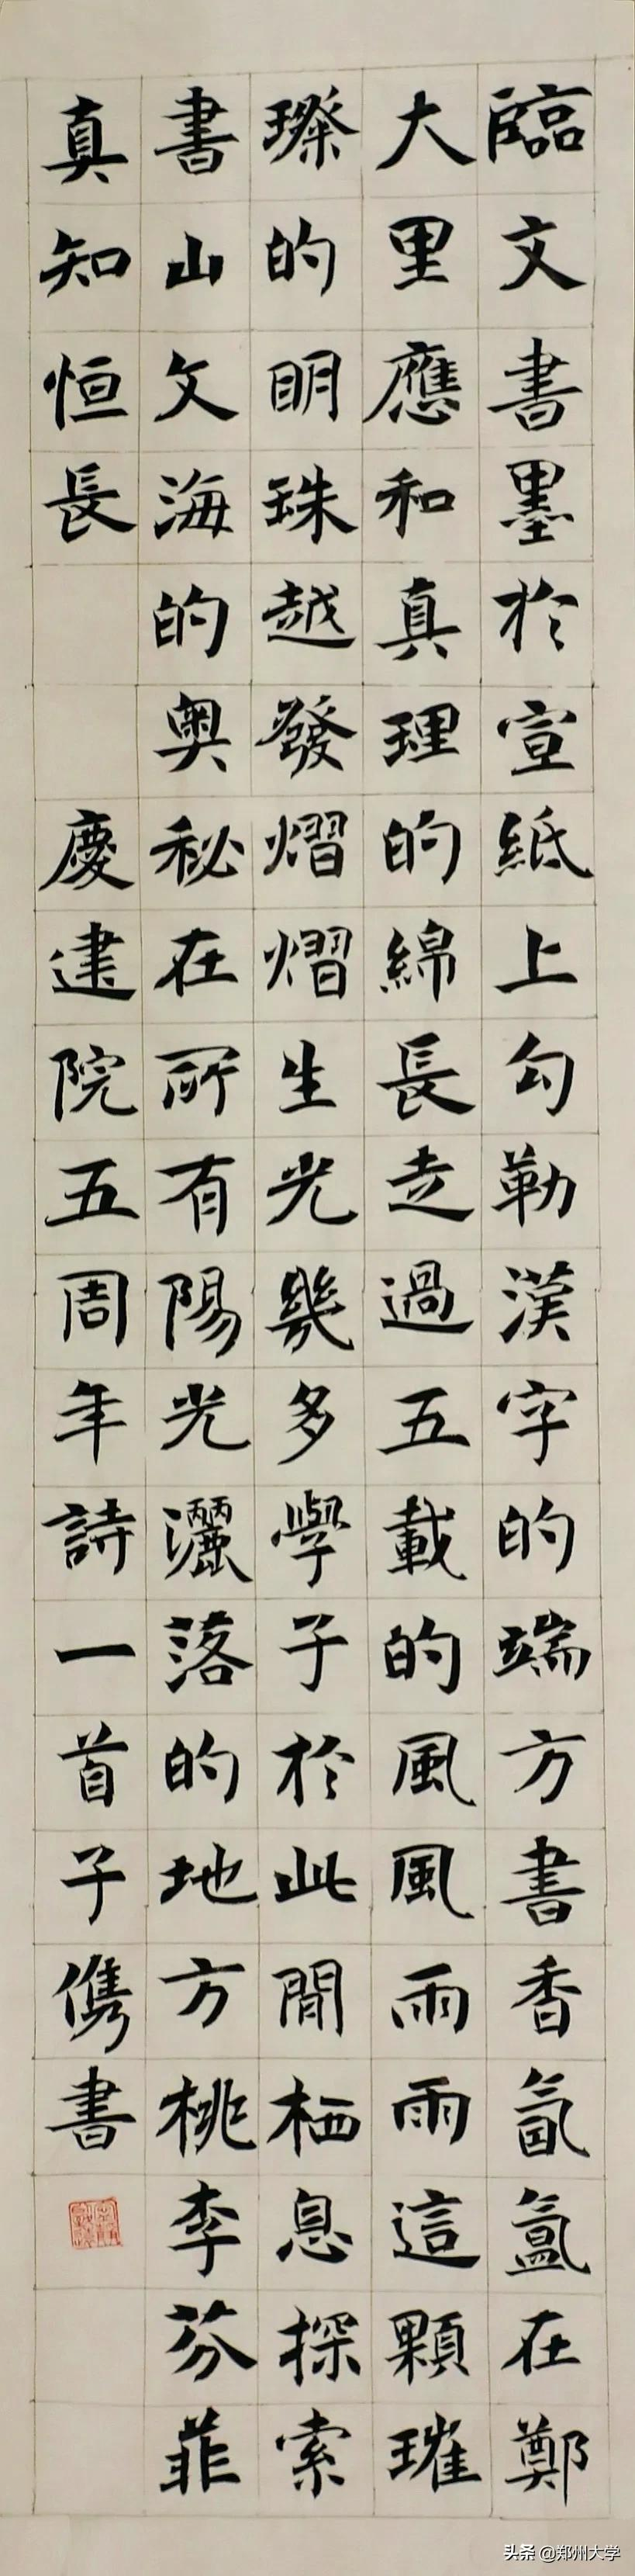 臨文書墨於宣紙上勾勒漢字的端方書香氤氳在鄭
大里應和真理的綿長走過五載的風風雨雨這顆璀
璨的明珠越發熠熠生光幾多學子於此間栖息探索
書山文海的奥秘在所有陽光灑落的地方桃李芬菲
真知恒長 慶建院五周年詩一首子儁書
头条 @郑州大学